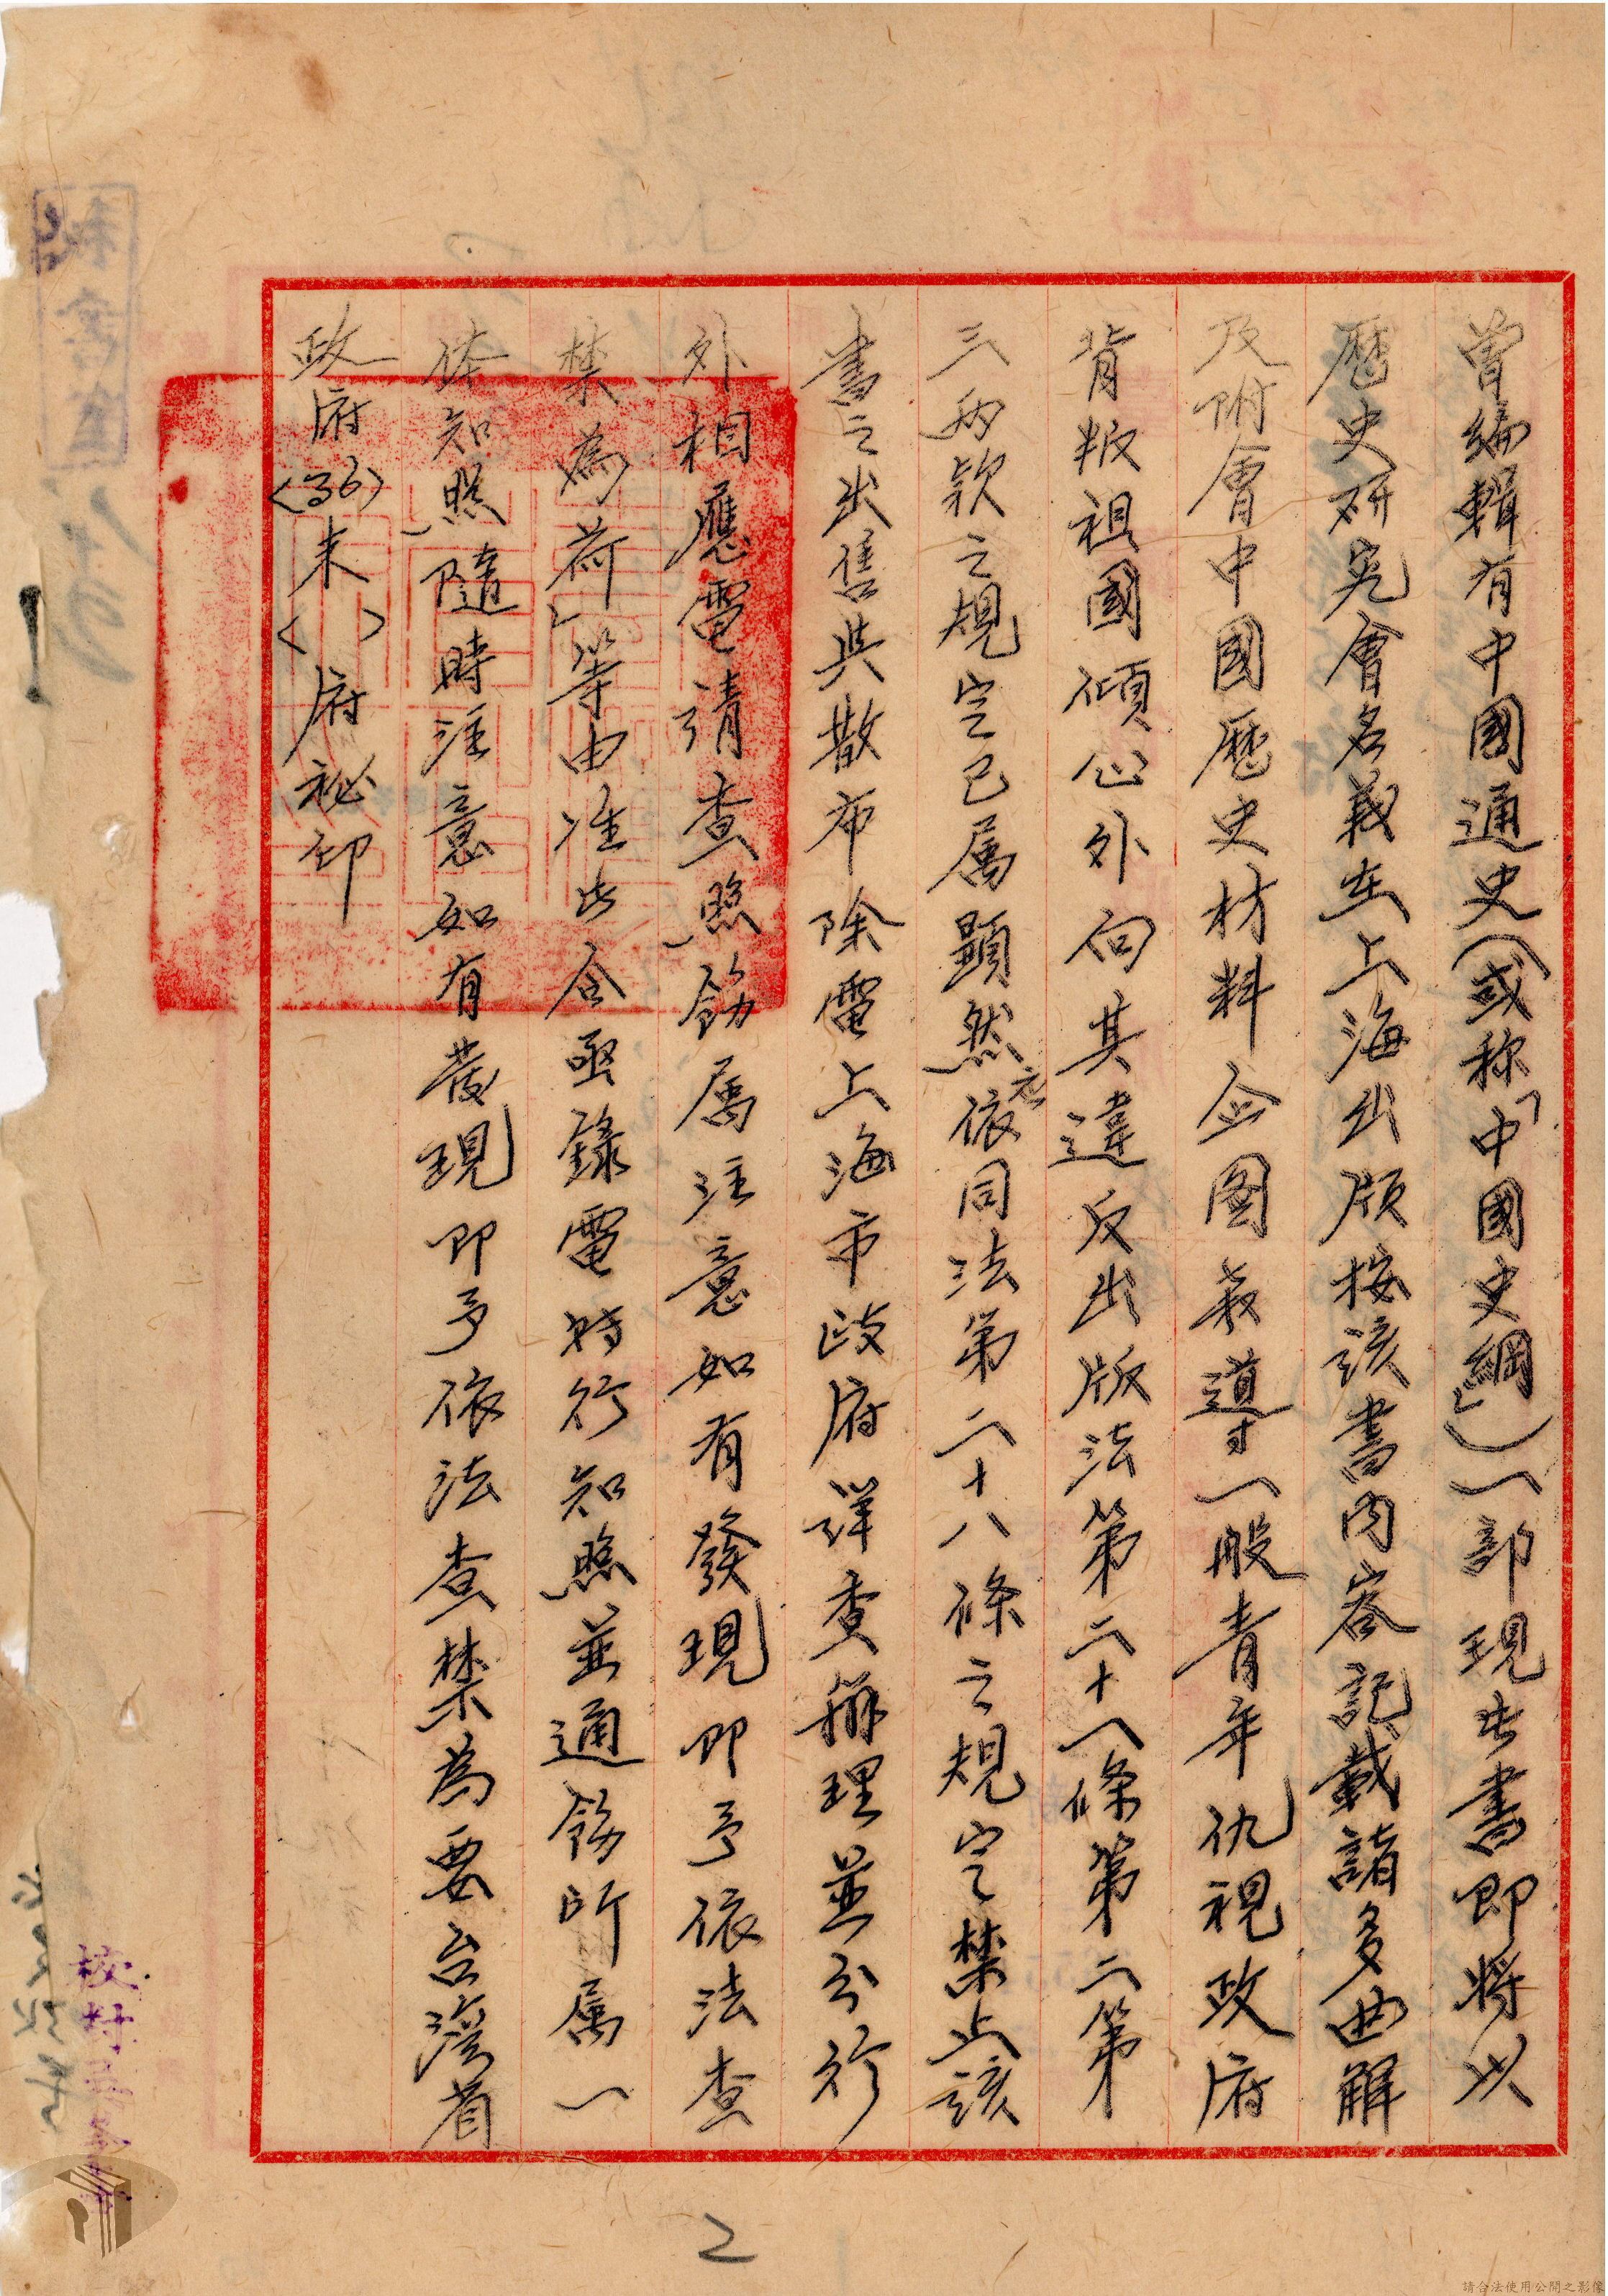 曾編輯有中國通史（或称「中國史綱」）一部現此書即将以
歷史研究會名義在上海出版按該書内容記載諸多曲解
及附會中國歷史材料企图誘導一般青年仇視政府
背叛祖國傾心外向其違反出版法第二十一條第二第
三两款之規定已属顯然应依同法第二十八條之規定禁止該
書之出售與散布除電上海市政府詳查辦理並分行
外相應電請查照飭属注意如有發現即予依法查
禁為荷」等由准此合亟錄電特行知照並通飭所属一
体知照隨時注意如有發現即予依法查禁為要台湾省
政府〈36〉未〈 〉府祕印
2
請合法使用公開之影像